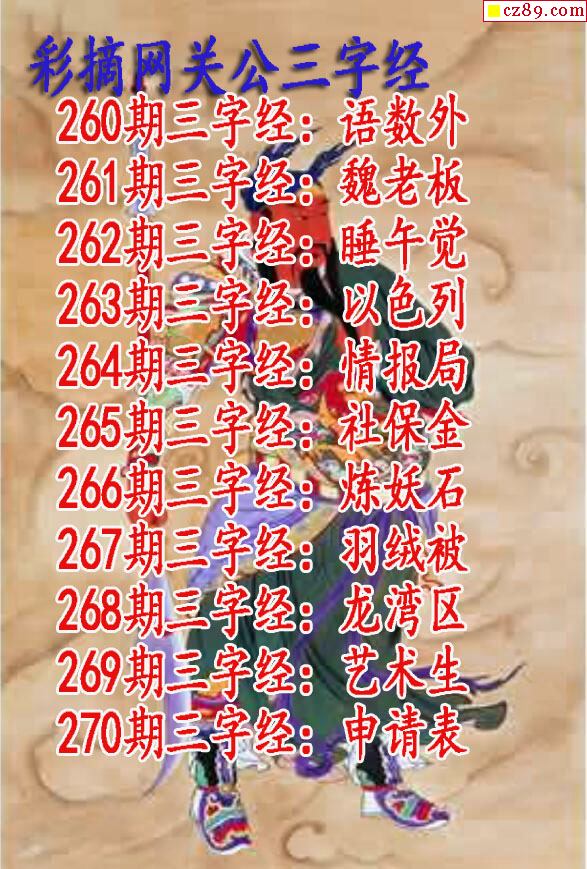 cz89.com
彩摘网关公三字经
260期三字经：语数外
261期三字经：魏老板
262期三字经：睡午觉
263期三字经：以色列
264期三字经：情报局
265期三字经：社保金
266期三字经：炼妖石
267期三字经：羽绒被
268期三字经：龙湾区
269期三字经：艺术生
270期三字经：申请表